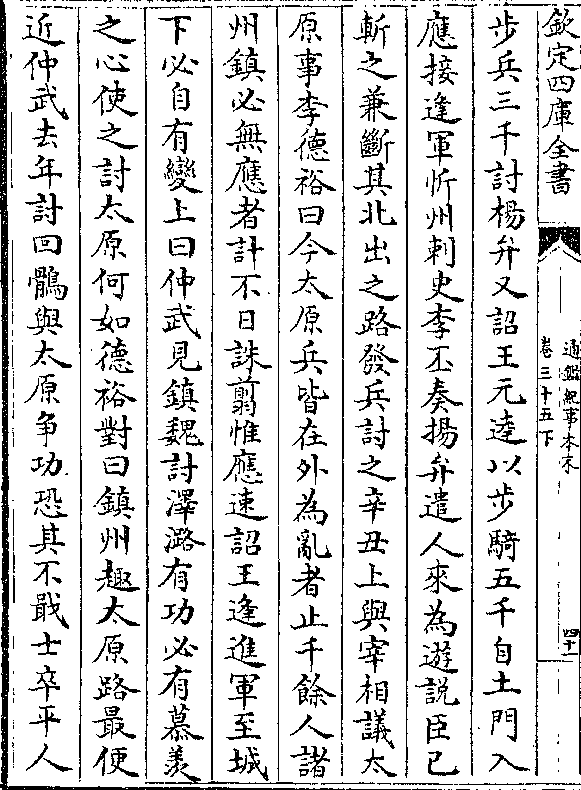 欽定四庫全書
通鑑紀事本末
卷三十五下
四十一
步兵三千討楊弁又詔王元逵以步騎五千自土門入
應接逢軍忻州刺史李丕奏揚弁遣人來為遊說臣已
斬之兼斷其北出之路發兵討之辛丑上與宰相議太
原事李德裕曰今太原兵皆在外為亂者止千餘人諸
州鎮必無應者計不日誅翦惟應速詔王逢進軍至城
下必自有變上曰仲武見鎮魏討澤潞有功必有慕羨
之心使之討太原何如德裕對曰鎮州趣太原路最便
近仲武去年討回鶻與太原爭功恐其不戢士卒平人